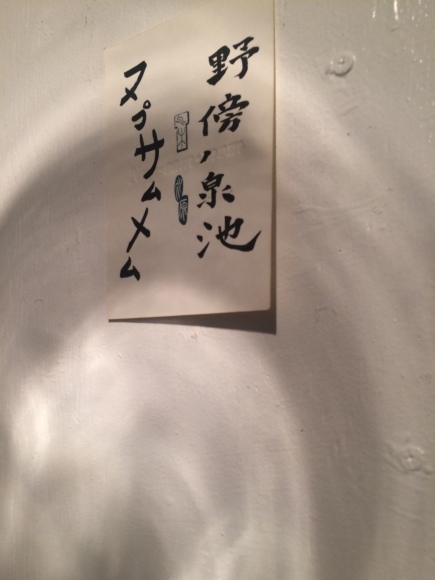 野傍ノ泉池
ヌプサムメム